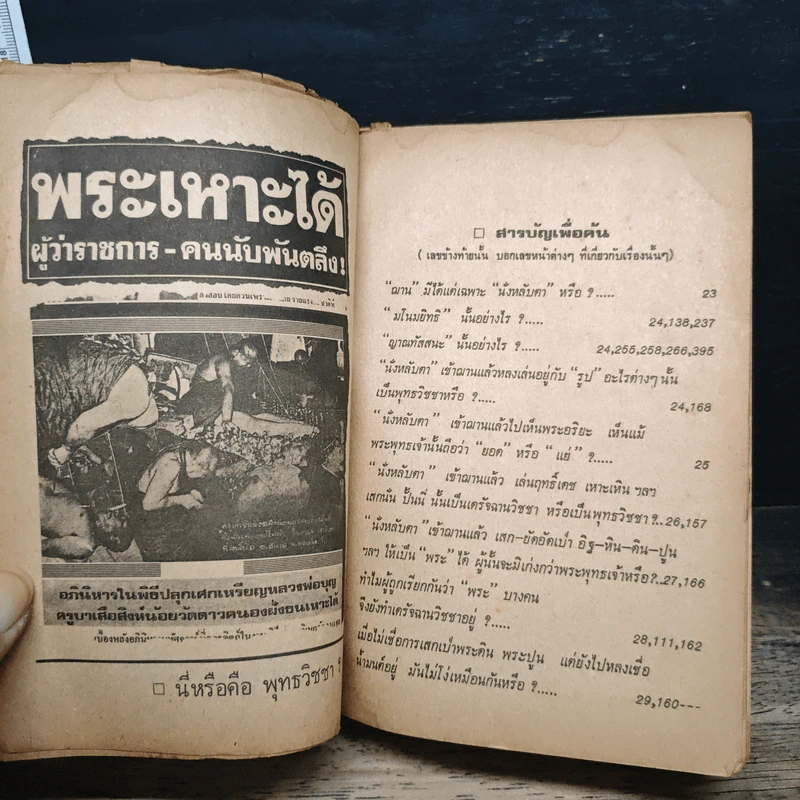 พระเหาะได้
ผู้ว่าราชการ - คนนับพันตลึง!
อภินิหารในพิธีปลุกเศกเหรียญหลวงพ่อบุญ
ครูบาเสือสิงห์น้อยวัดดาวคนองฝังงอนเหาะได้
□ นี่หรือคือ พุทธวิชชา ?
□ สารบัญเพื่อค้น
( เลขข้างท้ายนั้น บอกเลขหน้าต่างๆ ที่เกี่ยวกับเรื่องนั้นๆ)
“ฌาน” มีได้แต่เฉพาะ “นั่งหลับตา” หรือ ?..... 23
“มโนมยิทธิ” นั้นอย่างไร ?..... 24,138,237
“ญาณทัสสนะ” นั้นอย่างไร ?..... 24,255,258,266,395
“นั่งหลับตา” เข้าฌานแล้วหลงเล่นอยู่กับ “รูป” อะไรต่างๆ นั้น
เป็นพุทธวิชชาหรือ ?..... 24,168
“นั่งหลับตา” เข้าฌานแล้วไปเห็นพระอริยะ เห็นแม้
พระพุทธเจ้านั้นถือว่า “ยอด” หรือ “แย่” ?..... 25
“นั่งหลับตา” เข้าฌานแล้ว เล่นฤทธิ์เดช เหาะเหิน ฯลฯ
เสกนั่น ปั้นนี่ นั้นเป็นเดรัจฉานวิชชา หรือเป็นพุทธวิชชา ?..26,157
“นั่งหลับตา” เข้าฌานแล้ว เสก-ยัดอัดเป่า อิฐ-หิน-ดิน-ปูน
ฯลฯ ให้เป็น “พระ” ได้ ผู้นั้นจะมิเก่งกว่าพระพุทธเจ้าหรือ?..27,166
ทำไมผู้ถูกเรียกกันว่า “พระ” บางคน
จึงยังทำเดรัจฉานวิชชาอยู่ ?..... 28,111,162
เมื่อไม่เชื่อการเสกเป่าพระดิน พระปูน แต่ยังไปหลงเชื่อ
น้ำมนต์อยู่ มันไม่โง่เหมือนกันหรือ ?..... 29,160---